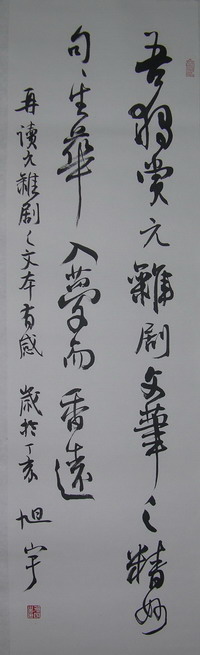 吾独赏元雜剧文华之精妙
句々生華入夢而香遠
再读元雜剧之文本有感 歲於丁亥 旭宇